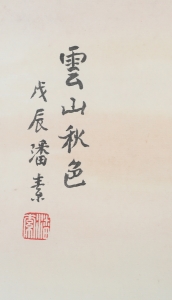 雲山秋色
戊辰潘素
潘素